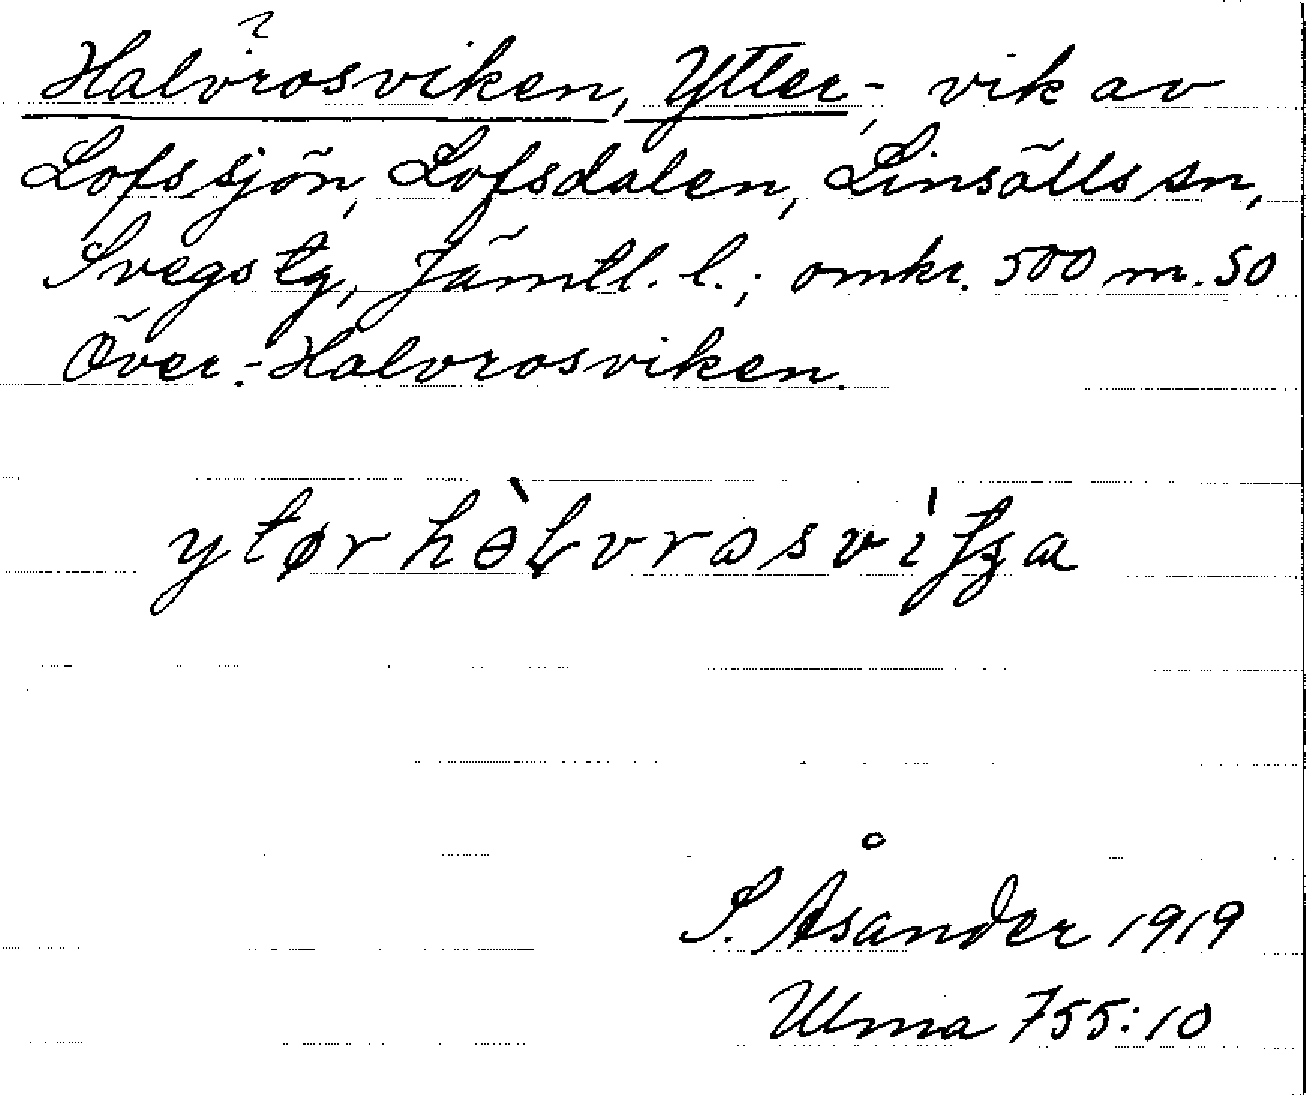 Halvrosviken, Ytter-, vik av
Lofssjön, Lofsdalen, Linsälls sn,
Svegs tg, Jämtl. l.; omkr. 500 m. SO
Över-Halvrosviken.
S. Åsander 1919
Ulma 755:10